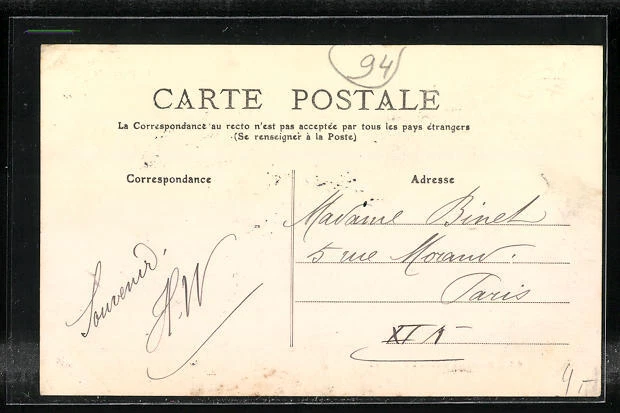 94
CARTE POSTALE
La Correspondance au recto n'est pas acceptée par tous les pays étrangers
(Se renseigner à la Poste)
Correspondance
Adresse
Souvenir.
HW
Madame Binet
5 rue Morand.
Paris
XI
4-